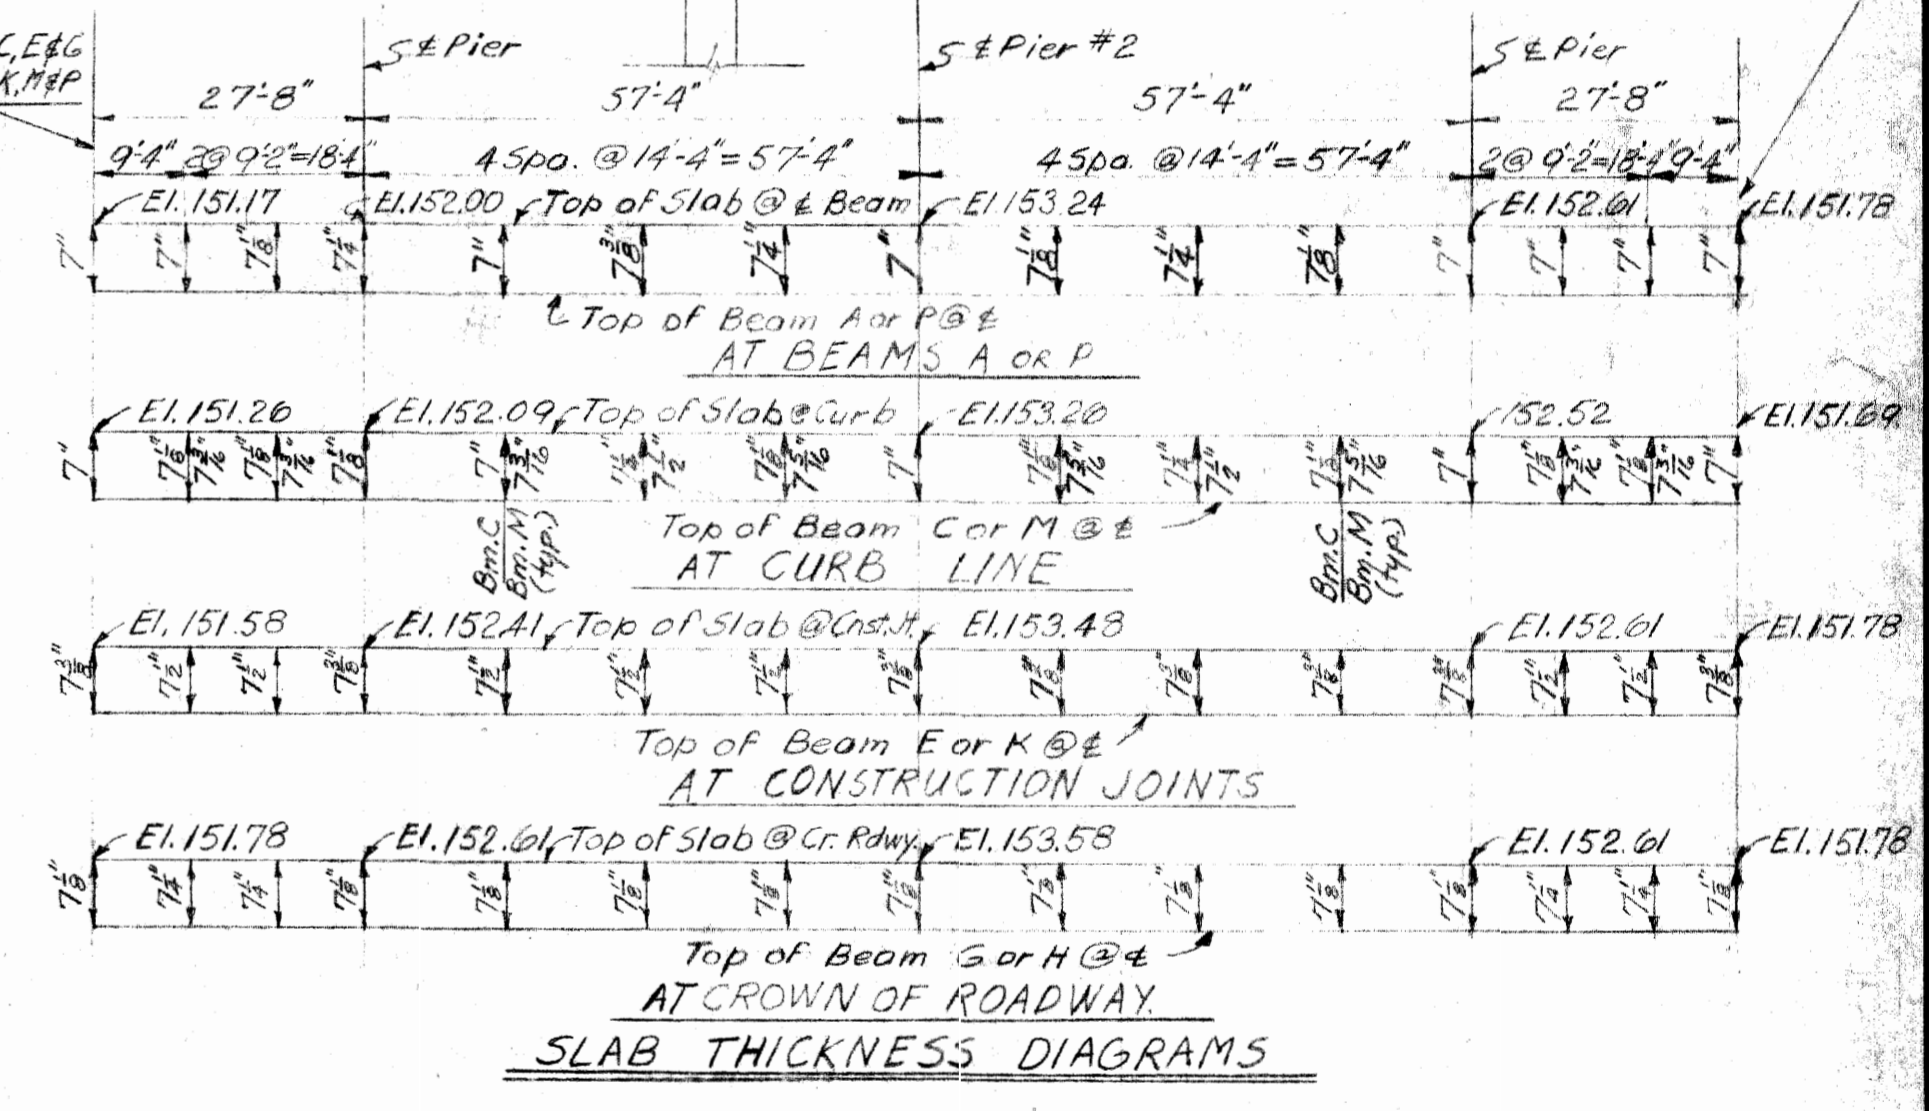 C,E&G
K,M&P
℄ Pier
℄ Pier #2
℄ Pier
27'-8"
57'-4"
57'-4"
27'-8"
9'-4" 2@9'-2"=18'-4"
4 Spa. @14'-4"=57'-4"
4 Spa. @14'-4"=57'-4"
2@9'-2"=18'-4" 9'-4"
El. 151.17
El. 152.00
Top of Slab @ ℄ Beam
El. 153.24
El. 152.61
El. 151.78
7" 7" 7 1/8" 7 1/4" 7" 7 3/8" 7 1/4" 7" 7 1/8" 7 1/4" 7 1/8" 7" 7" 7" 7"
Top of Beam A or P @ ℄
AT BEAMS A OR P
El. 151.26
El. 152.09
Top of Slab @ Curb
El. 153.26
152.52
El. 151.69
7" 7 1/8" 7 3/16" 7 1/8" 7 3/16" 7 1/8" 7" 7 3/16" 7 1/2" 7 1/8" 7 5/16" 7" 7 1/8" 7 3/16" 7 1/4" 7 1/2" 7 5/16" 7" 7 1/8" 7 3/16" 7 1/8" 7 3/16" 7"
Bm. C
Bm. M
(typ.)
Top of Beam C or M @ ℄
Bm. C
Bm. M
(typ.)
AT CURB LINE
El. 151.58
El. 152.41
Top of Slab @ Cnst. Jt.
El. 153.48
El. 152.61
El. 151.78
7 3/8" 7 1/2" 7 1/2" 7 3/8" 7 1/2" 7 1/2" 7 1/2" 7 3/8" 7 3/8" 7 3/8" 7 3/8" 7 3/8" 7 1/2" 7 1/2" 7 3/8"
Top of Beam E or K @ ℄
AT CONSTRUCTION JOINTS
El. 151.78
El. 152.61
Top of Slab @ Cr. Rdwy.
El. 153.58
El. 152.61
El. 151.78
7 1/8" 7 1/4" 7 1/4" 7 1/8" 7 1/8" 7 1/8" 7 1/8" 7 1/8" 7 1/8" 7 1/8" 7 1/8" 7 1/8" 7 1/4" 7 1/4" 7 1/8"
Top of Beam G or H @ ℄
AT CROWN OF ROADWAY.
SLAB THICKNESS DIAGRAMS